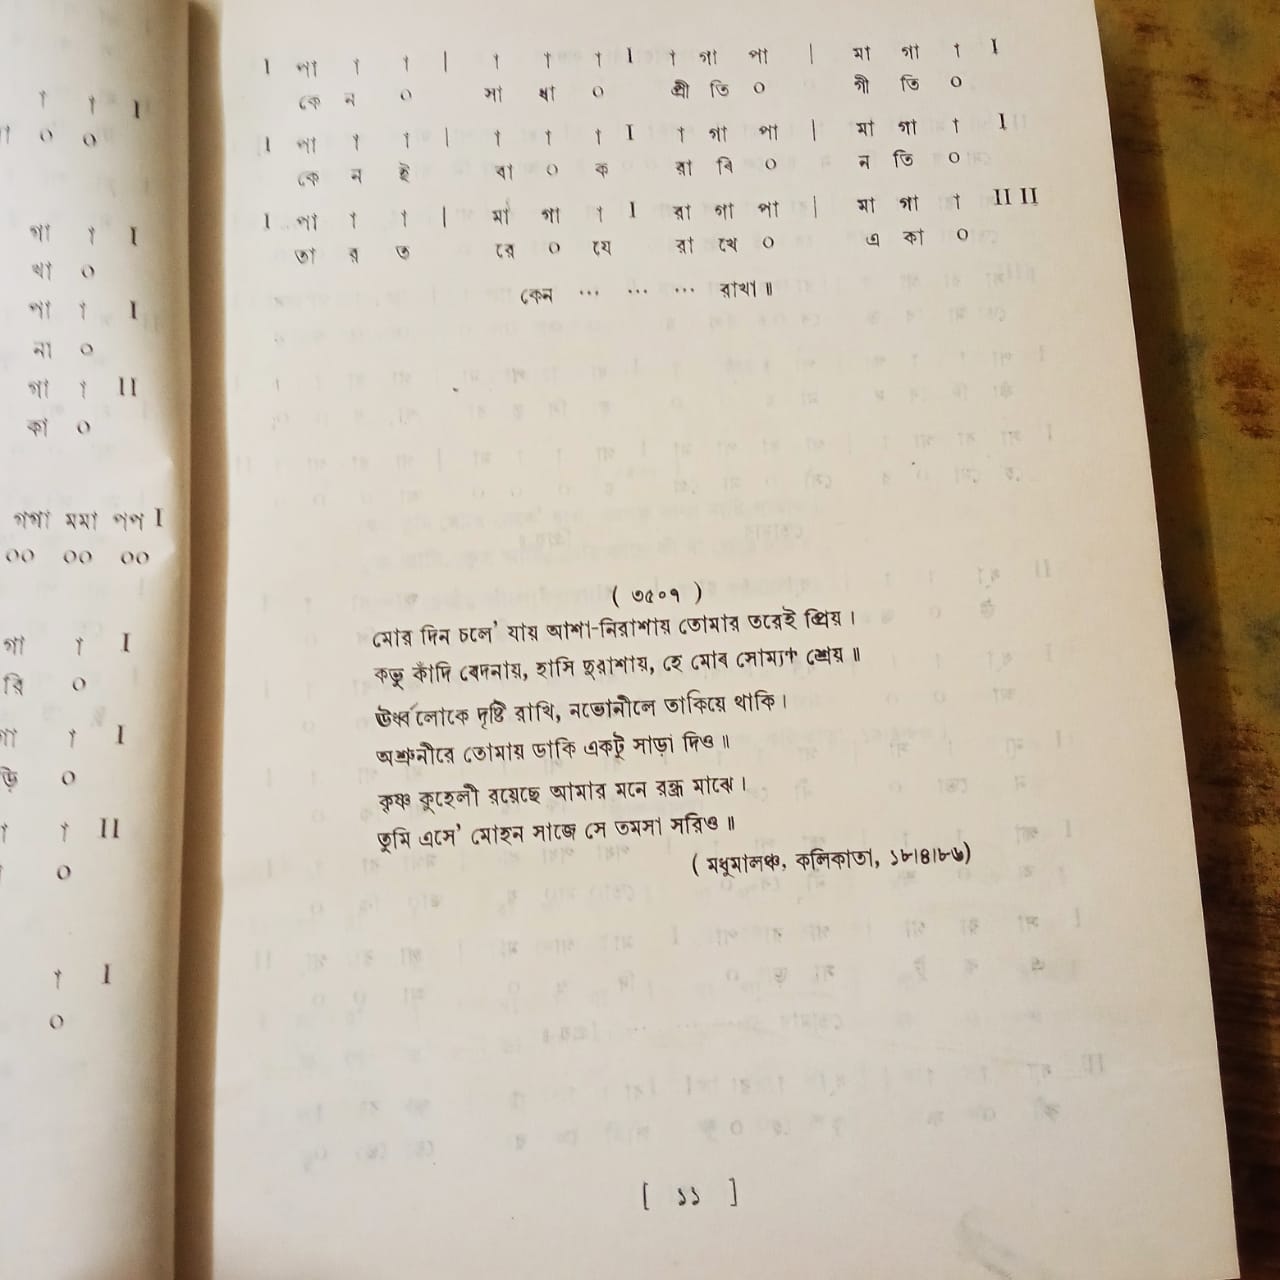 া া I
০ ০
গা া I
থা ০
পা া I
না ০
গা া II
কা ০
গগা মমা পপ I
০০ ০০ ০০
গা া I
রি ০
া I
ড়ি ০
া II
০
া I
০
I পা া া | া া া I া গা পা | মা গা া I
কে ন ০ সা ধা ০ প্রী তি ০ গী তি ০
I পা া া | া া া I া গা পা | মা গা া I
কে ন ই বা ০ ক রা বি ০ ন তি ০
I পা া া | মা গা া I রা গা পা | মা গা া II II
তা র ত রে ০ যে রা খে ০ এ কা ০
কেন ... ... ... রাখা॥
( ৩৫০৭ )
মোর দিন চলে' যায় আশা-নিরাশায় তোমার তরেই প্রিয়।
কভু কাঁদি বেদনায়, হাসি দুরাশায়, হে মোর সোম্য শ্রেয়॥
ঊর্ধ্বলোকে দৃষ্টি রাখি, নভোনীলে তাকিয়ে থাকি।
অশ্রুনীরে তোমায় ডাকি একটু সাড়া দিও॥
কৃষ্ণ কুহেলী রয়েছে আমার মনে রন্ধ্র মাঝে।
তুমি এসে' মোহন সাজে সে তমসা সরিও॥
( মধুমালঞ্চ, কলিকাতা, ১৮।৪।৮৬)
[ ১১ ]